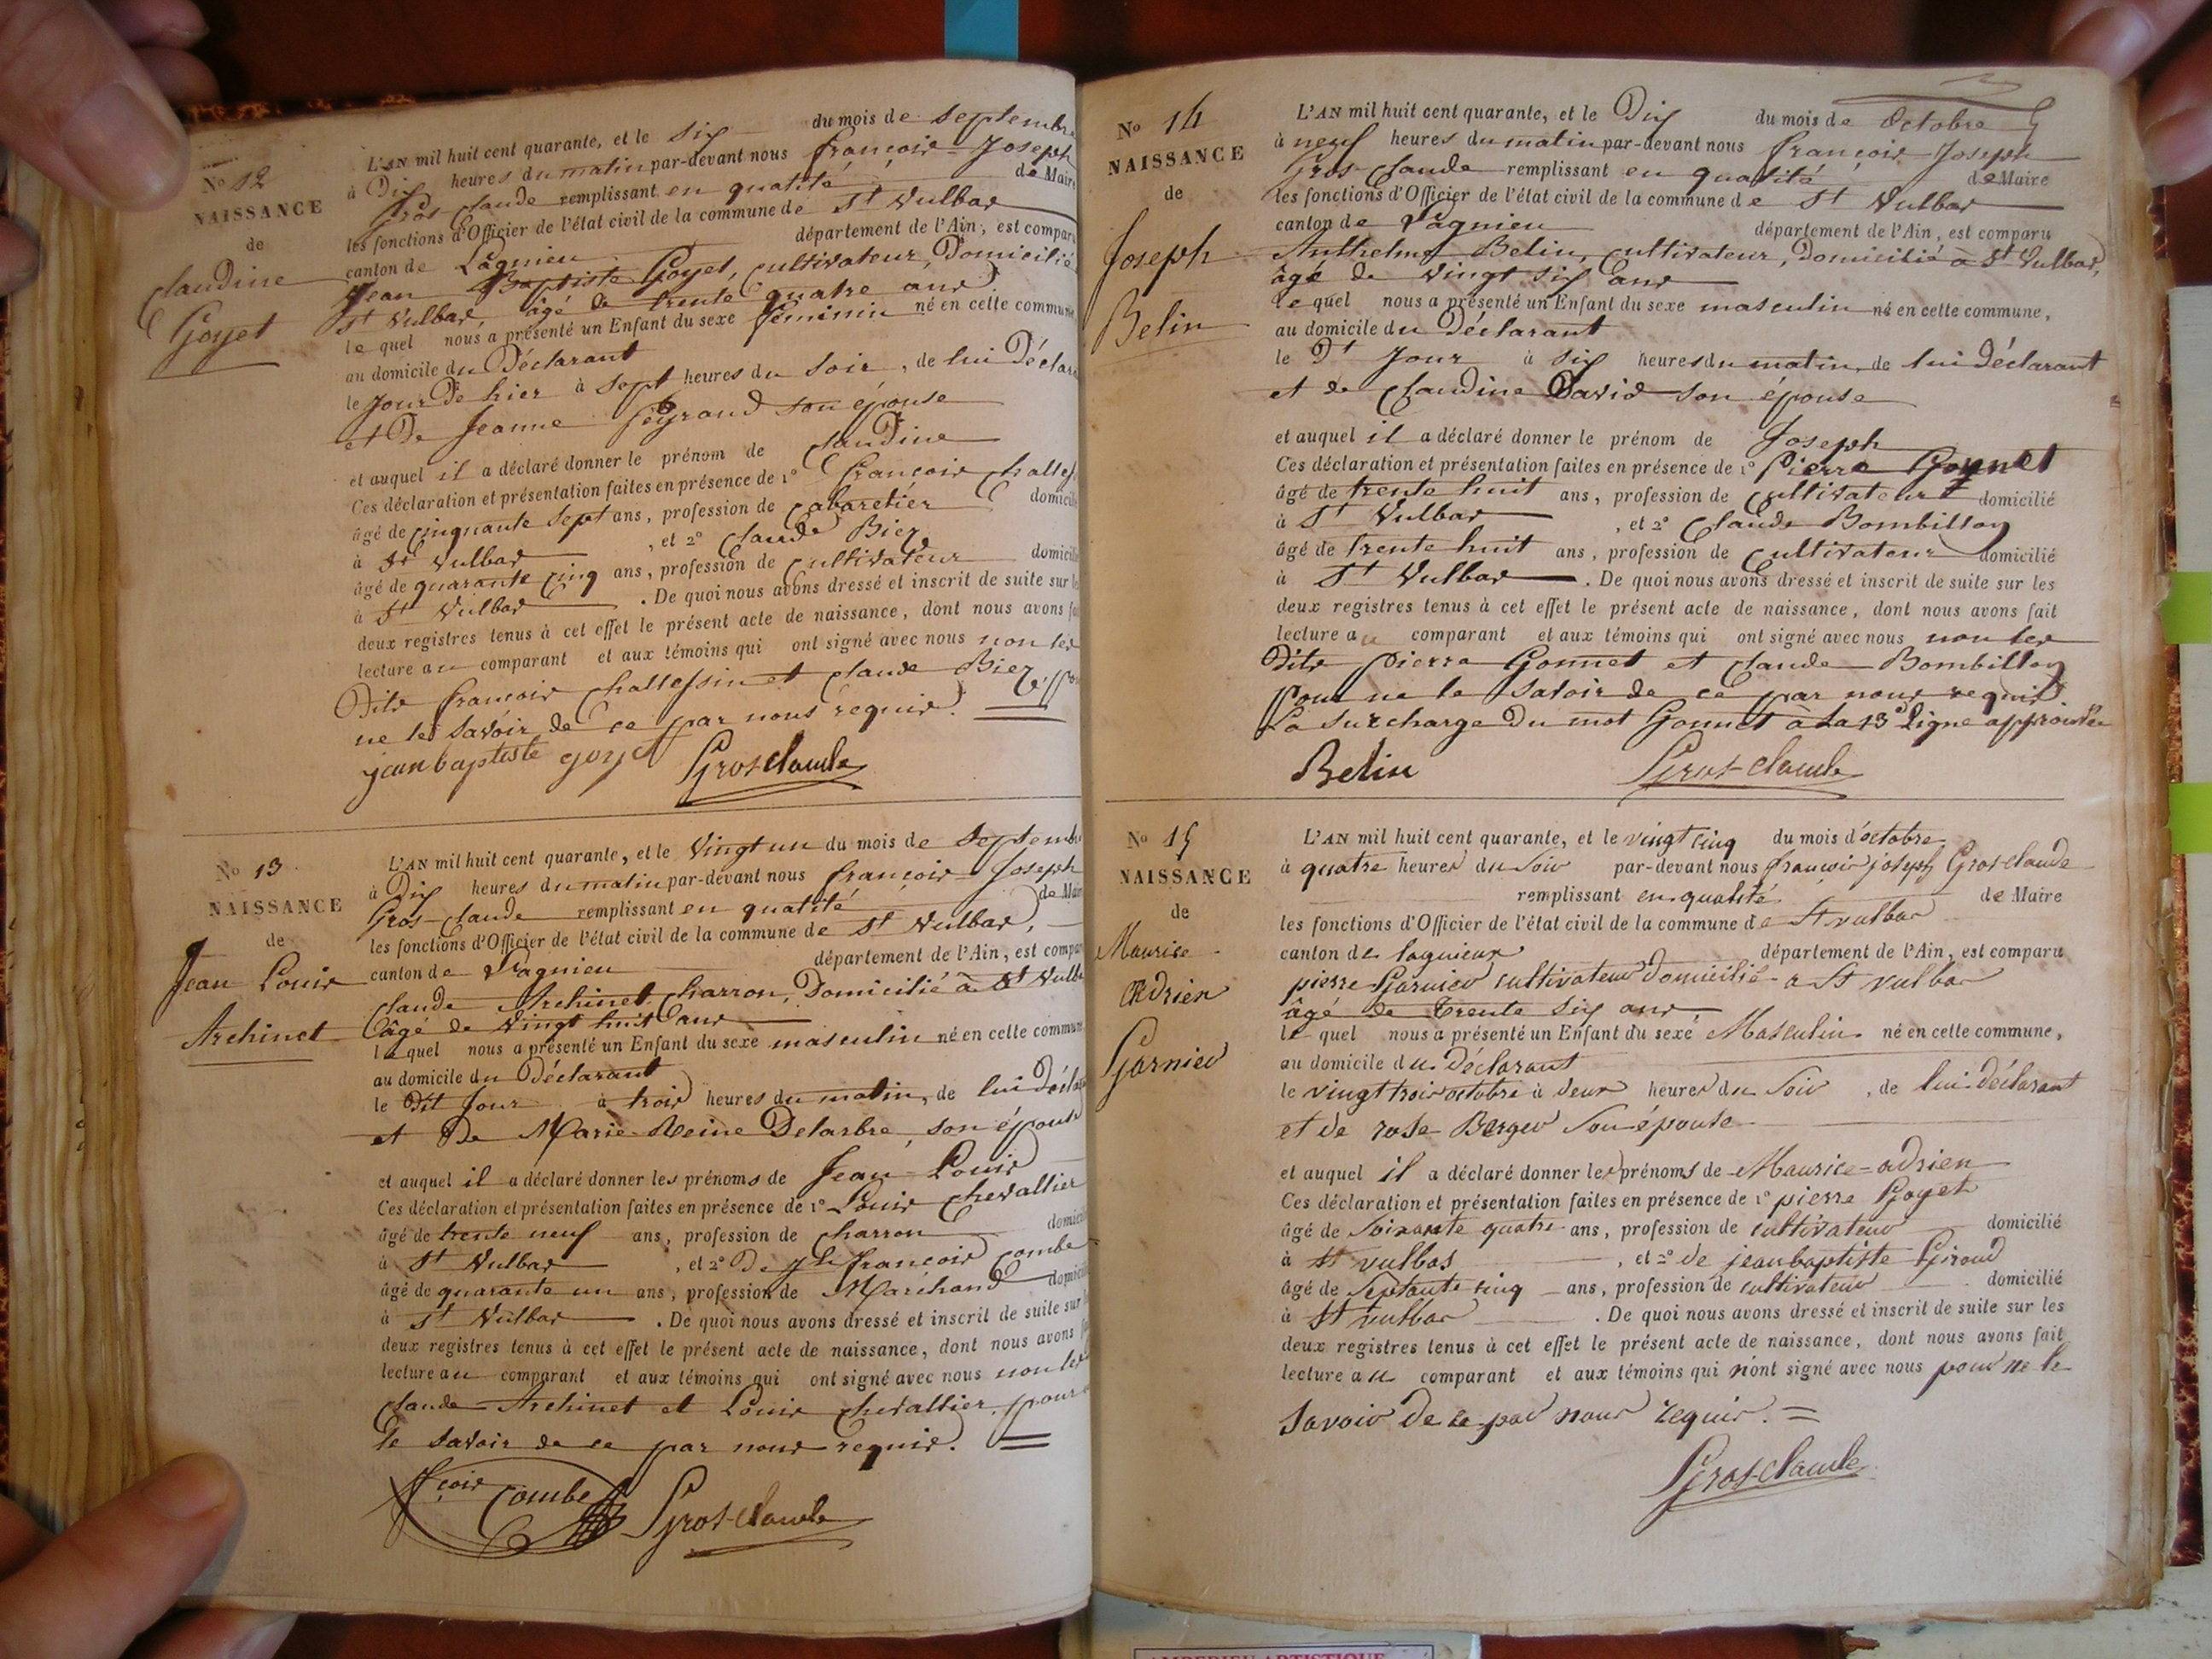 No 12
NAISSANCE
de
Claudine
Goyet
L'AN mil huit cent quarante, et le Six du mois de Septembre
à Dix heures du matin par-devant nous françois Joseph
Gros Claude remplissant en qualité de Maire
les fonctions d'Officier de l'état civil de la commune de St Vulbas
canton de Lagnieu département de l'Ain, est comparu
Jean Baptiste Goyet, Cultivateur, Domicilié
St Vulbas, âgé de trente quatre ans
le quel nous a présenté un Enfant du sexe féminin né en cette commune
au domicile du Déclarant
le Jour De hier à Sept heures du Soir, de lui Déclarant
et De Jeanne Peyraud son épouse
et auquel il a déclaré donner le prénom de Claudine
Ces déclaration et présentation faites en présence de 1° françois
âgé de cinquante Sept ans, profession de Cabaretier domicilié
à St Vulbas, et 2° Claude Biez
âgé de quarante cinq ans, profession de Cultivateur domicilié
à St Vulbas. De quoi nous avons dressé et inscrit de suite sur les
deux registres tenus à cet effet le présent acte de naissance, dont nous avons fait
lecture au comparant et aux témoins qui ont signé avec nous non les
Dits françois Challessin et Claude Biez
ne le Savoir de ce par nous requis.
jean baptiste goyet Grosclaude
No 13
NAISSANCE
de
Jean Louis
Archinet
L'AN mil huit cent quarante, et le Vingt un du mois de Septembre
à Dix heures du matin par-devant nous françois Joseph
Gros Claude remplissant en qualité de Maire
les fonctions d'Officier de l'état civil de la commune de St Vulbas,
canton de Lagnieu département de l'Ain, est comparu
Claude Archinet Charron, Domicilié à St Vulbas
âgé de Vingt huit ans
le quel nous a présenté un Enfant du sexe masculin né en cette commune
au domicile du Déclarant
le Dit Jour à trois heures du matin, de lui Déclarant
et De Marie Reine Delarbre, son épouse
et auquel il a déclaré donner les prénoms de Jean Louis
Ces déclaration et présentation faites en présence de 1° Louis Chevallier
âgé de trente neuf ans, profession de Charron domicilié
à St Vulbas, et 2° De françois Combe
âgé de quarante un ans, profession de Maréchand domicilié
à St Vulbas. De quoi nous avons dressé et inscrit de suite sur les
deux registres tenus à cet effet le présent acte de naissance, dont nous avons fait
lecture au comparant et aux témoins qui ont signé avec nous non les
Claude Archinet et Louis Chevallier, pour
le Savoir de ce par nous requis.
fçois Combe Grosclaude
No 14
NAISSANCE
de
Joseph
Belin
L'AN mil huit cent quarante, et le Dix du mois de Octobre
à neuf heures du matin par-devant nous françois Joseph
Gros Claude remplissant en qualité de Maire
les fonctions d'Officier de l'état civil de la commune de St Vulbas
canton de Lagnieu département de l'Ain, est comparu
Anthelme Belin, Cultivateur, Domicilié à St Vulbas,
âgé de Vingt Six ans
le quel nous a présenté un Enfant du sexe masculin né en cette commune,
au domicile du Déclarant
le Dt Jour à Six heures du matin, de lui Déclarant
et de Claudine David son épouse
et auquel il a déclaré donner le prénom de Joseph
Ces déclaration et présentation faites en présence de 1° Pierre Gonnet
âgé de trente huit ans, profession de Cultivateur domicilié
à St Vulbas, et 2° Claude Bombillon
âgé de trente huit ans, profession de Cultivateur domicilié
à St Vulbas. De quoi nous avons dressé et inscrit de suite sur les
deux registres tenus à cet effet le présent acte de naissance, dont nous avons fait
lecture au comparant et aux témoins qui ont signé avec nous non les
Dits Pierre Gonnet et Claude Bombillon
Pour ne le Savoir de ce par nous requis
La surcharge Du mot Gonnet à La 13e ligne approuvée
Belin Grosclaude
No 15
NAISSANCE
de
Maurice
Adrien
Garnier
L'AN mil huit cent quarante, et le vingt cinq du mois d'octobre
à quatre heures du Soir par-devant nous françois joseph Gros claude
remplissant en qualité de Maire
les fonctions d'Officier de l'état civil de la commune de St vulbas
canton de lagnieux département de l'Ain, est comparu
pierre Garnier Cultivateur domicilié a St vulbas
âgé de trente Six ans
le quel nous a présenté un Enfant du sexe Masculin né en cette commune,
au domicile du Déclarant
le vingt trois octobre à deux heures du Soir, de lui déclarant
et de rose Berger Son épouse
et auquel il a déclaré donner les prénoms de Maurice=adrien
Ces déclaration et présentation faites en présence de 1° pierre Goyet
âgé de Soixante quatre ans, profession de Cultivateur domicilié
à St vulbas, et 2° de jean baptiste Giroud
âgé de Septante cinq ans, profession de Cultivateur domicilié
à St vulbas. De quoi nous avons dressé et inscrit de suite sur les
deux registres tenus à cet effet le présent acte de naissance, dont nous avons fait
lecture au comparant et aux témoins qui n'ont signé avec nous pour ne le
Savoir de ce par nous requis.=
Grosclaude